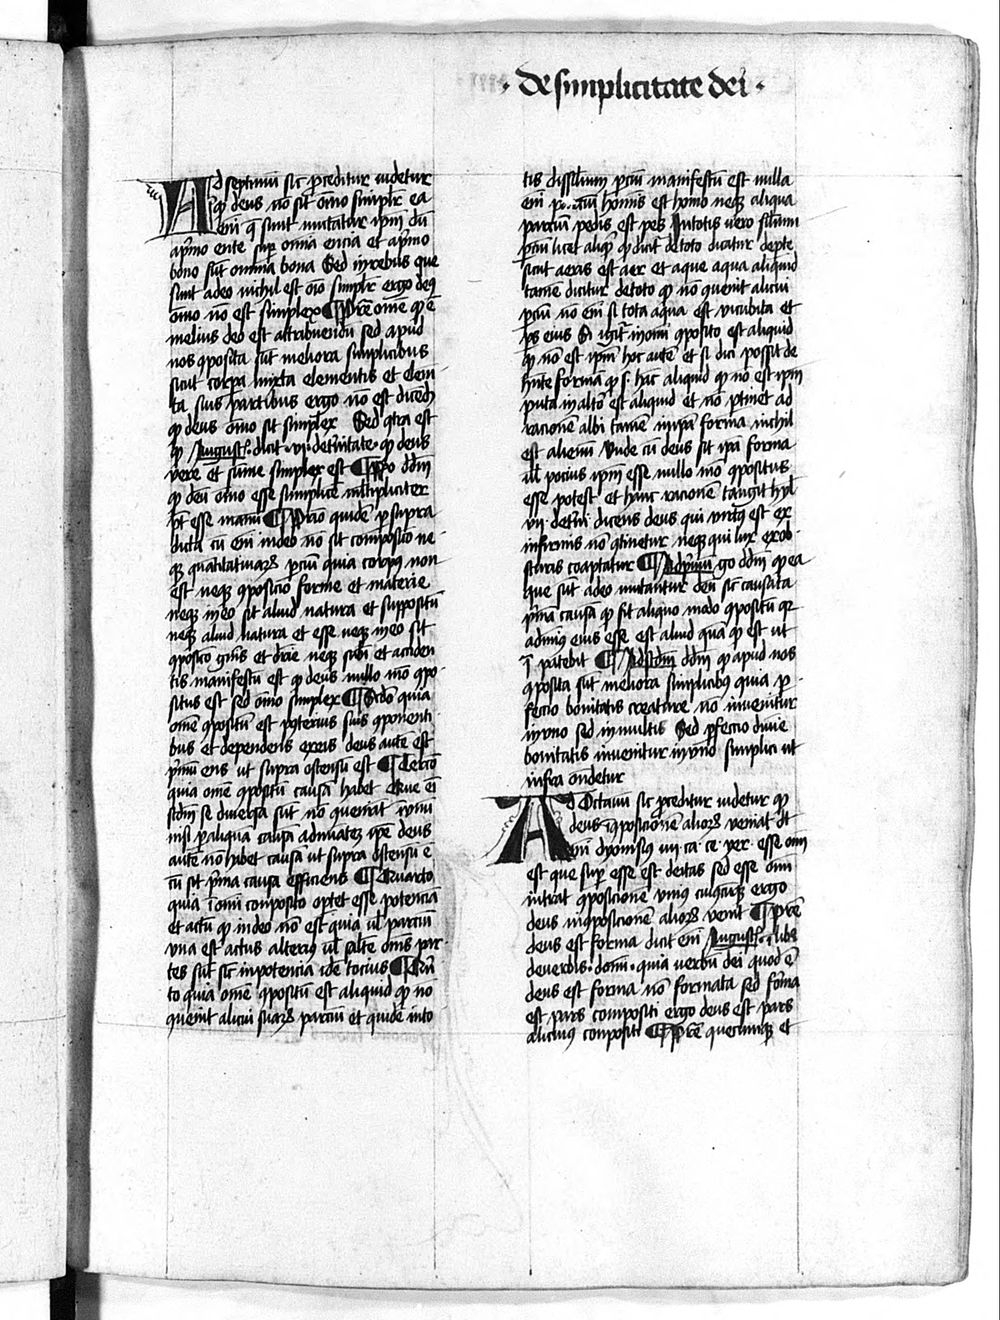 · De simplicitate dei ·
Ad septimu sic proceditur videtur
q deus no sit omo simplex ea
eni q sunt imitatur ipm Vn
a primo ente sunt omnia encia et a primo
bono sut omnia bona Sed in rebus que
sunt a deo nichil est oio simplex ergo deus
omo no est simplex ¶ Pre ome q e
melius deo est attribuendu sed apud
nos composita sut meliora simplicibus
sicut corpa mixta elementis et elem
ta suis partibus ergo no est dicend
q deus omo sit simplex Sed contra est
q August. dicit vi de trinitate q deus
vere et sume simplex est ¶ Rno ddm
q deu omo esse simplice multipliciter
pt esse mani ¶ Primo quide per supra
dicta cu eni in deo no sit compositio ne
qz quantitativarz parcium quia corpus non
est neqz compositio forme et materie
neqz in eo sit aliud natura et suppositu
neqz aliud natura et esse neqz in eo sit
compositio gnis et drie neqz subi et acciden
tis manifestu est q deus nullo mo compo
situs est sed omo simplex ¶ Scdo quia
ome compositu est posterius suis componenti
bus et dependens ex eis deus aute est
primu ens ut supra ostensu est ¶ Tercio
quia ome compositu causa habet Que eni
scdm se diversa sut no conveniunt in unu
nisi per aliqua causa adunatem ipa deus
aute no habet causa ut supra ostensu e
cu sit prima causa efficiens ¶ Quarto
quia in omi composito optet esse potencia
et actu q in deo non est quia vel parcium
una est actus alterius vel saltem oms par
tes sut sic in potencia respectu tocius ¶ Quin
to quia ome compositu est aliquid q no
convenit alicui suarz parcium et quide in to
tis dissilium parcium manifestu est nulla
eni parcium hominis est homo neqz aliqua
parcium pedis est pes In totis vero silium
parcium licet aliquid q dicit de toto dicatur de parte
sicut aeris est aer et aque aqua aliquid
tame dicitur de toto q no convenit alicui
parcium no eni si tota aqua est bicubita et
ps eius Sic igitur in omi composito est aliquid
q no est ipm hoc aute et si dici possit de
hnte forma q s. hac aliquid q no est ipm
puta in albo est aliquid et no pertinet ad
racione albi tame in ipa forma nichil
est alienu Unde cu deus sit ipa forma
vel pocius ipm esse nullo mo compositus
esse potest et hanc racione tangit hyl
vii de trini dicens deus qui virtus est ex
infirmis no continetur neqz qui lux ex ob
scuris coaptatur ¶ Ad primu go ddm q ea
que sut a deo imitantur deu sic causata
prima causa q sit aliquo modo compositu qr
ad minus eius esse est aliud qua q est ut
i patebit ¶ Ad scdm ddm q apud nos
composita sut meliora simplicibus quia per
fectio bonitatis creature no invenitur
in uno sed in multis Sed perfectio divine
bonitatis invenitur in uno simplici ut
infra ondetur
Ad Octavu sic proceditur videtur q
deus in composicione aliorz veniat dt
eni dyonisius iiii ca ce yer. esse oim
est que super esse est deitas sed esse oim
intrat composicione unius cuiusqz ergo
deus in composicione aliorz venit ¶ Pre
deus est forma dicit eni August. i libro
de verbis domi quia verbu dei quod e
deus est forma no formata sed forma
est pars compositi ergo deus est pars
alicuius compositi ¶ Pre quecunqz et